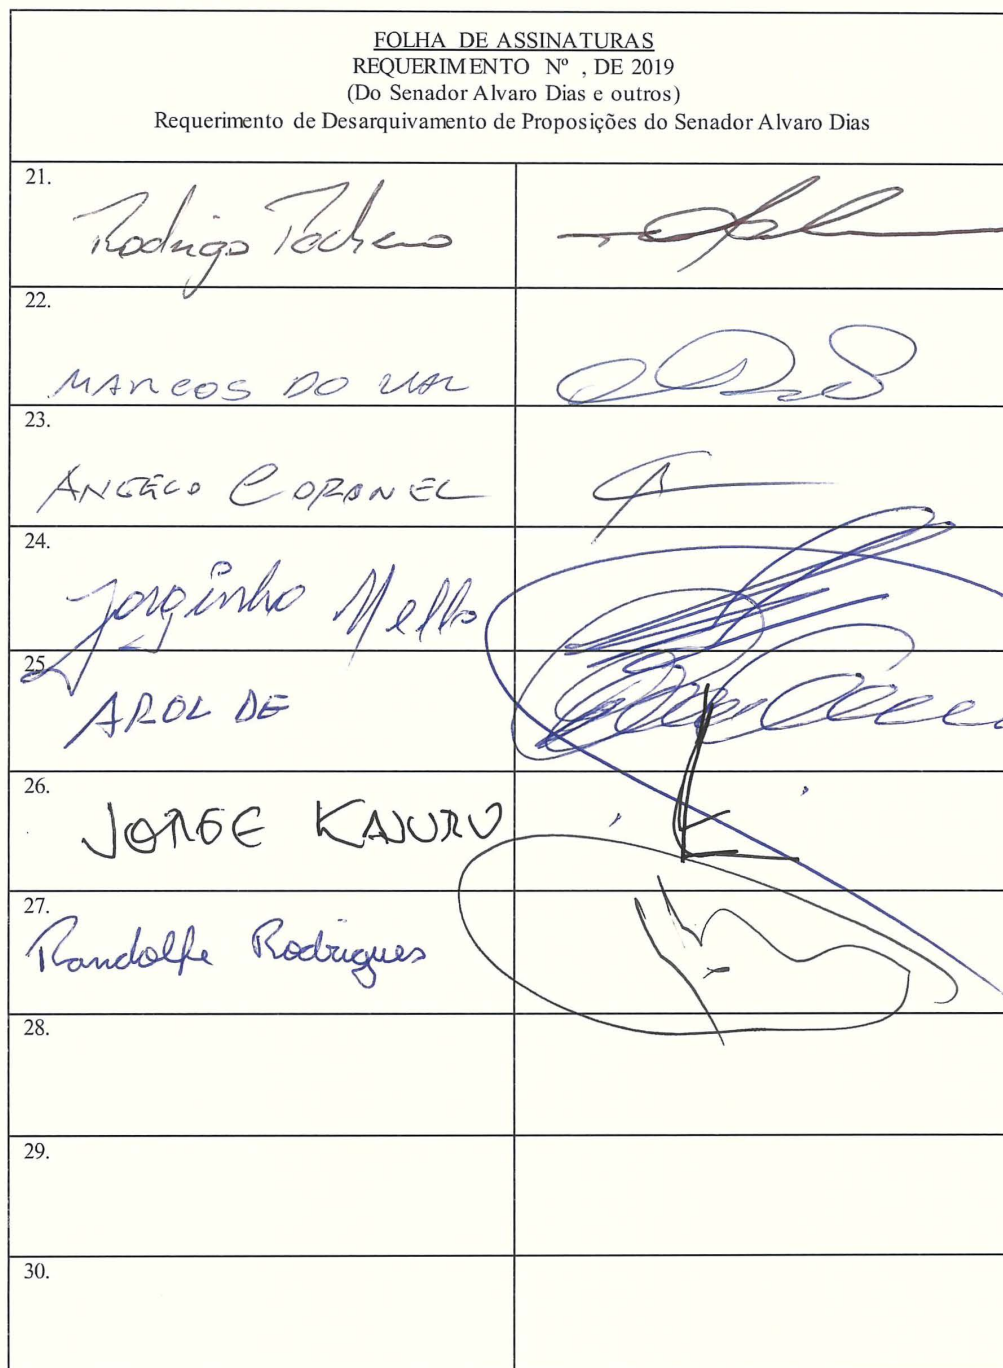 FOLHA DE ASSINATURAS
REQUERIMENTO Nº , DE 2019
(Do Senador Alvaro Dias e outros)
Requerimento de Desarquivamento de Proposições do Senador Alvaro Dias
21.
Rodrigo Pacheco
22.
MARCOS DO VAL
23.
ANGELO CORONEL
24.
Jorginho Mello
25
AROLDE
26.
JORGE KAJURU
27.
Randolfe Rodrigues
28.
29.
30.